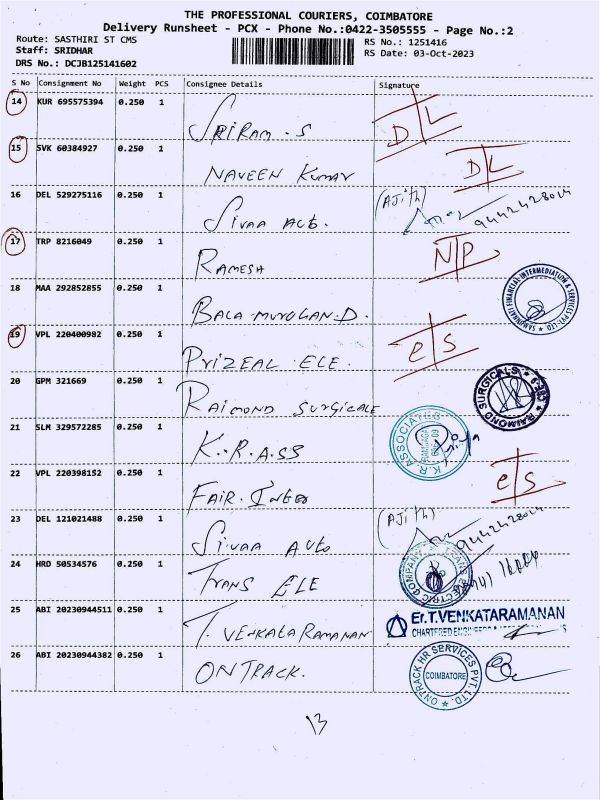 THE PROFESSIONAL COURIERS, COIMBATORE
Delivery Runsheet - PCX - Phone No.:0422-3505555 - Page No.:2
Route: SASTHIRI ST CMS
RS No.: 1251416
Staff: SRIDHAR
RS Date: 03-Oct-2023
DRS No.: DCJB125141602
S No Consignment No Weight PCS Consignee Details Signature
14 KUR 695575394 0.250 1 SRIRAM.S D/L
15 SVK 60384927 0.250 1 NAVEEN KUMAR D/L
16 DEL 529275116 0.250 1 SIVAA AUTO. (AJith)
17 TRP 8216049 0.250 1 RAMESH N/P
18 MAA 292852855 0.250 1 BALA MURUGAN.D.
SAMUNNATI FINANCIAL INTERMEDIATION & SERVICES PVT. LTD.
19 VPL 220400982 0.250 1 PRIZEAL ELE. e/s
20 GPM 321669 0.250 1 RAIMOND SURGICALE
RAIMOND SURGICALS
21 SLM 329572285 0.250 1 K.R.ASS
K.R. ASSOCIATES
22 VPL 220398152 0.250 1 FAIR. e/s
23 DEL 121021488 0.250 1 SIVAA AUTO (AJith)
24 HRD 50534576 0.250 1 TRANS ELE
25 ABI 20230944511 0.250 1 T. VENKATARAMANAN
Er.T.VENKATARAMANAN
CHARTERED ENGINEER
26 ABI 20230944382 0.250 1 ONTRACK.
ONTRACK HR SERVICES PVT. LTD.
COIMBATORE
13